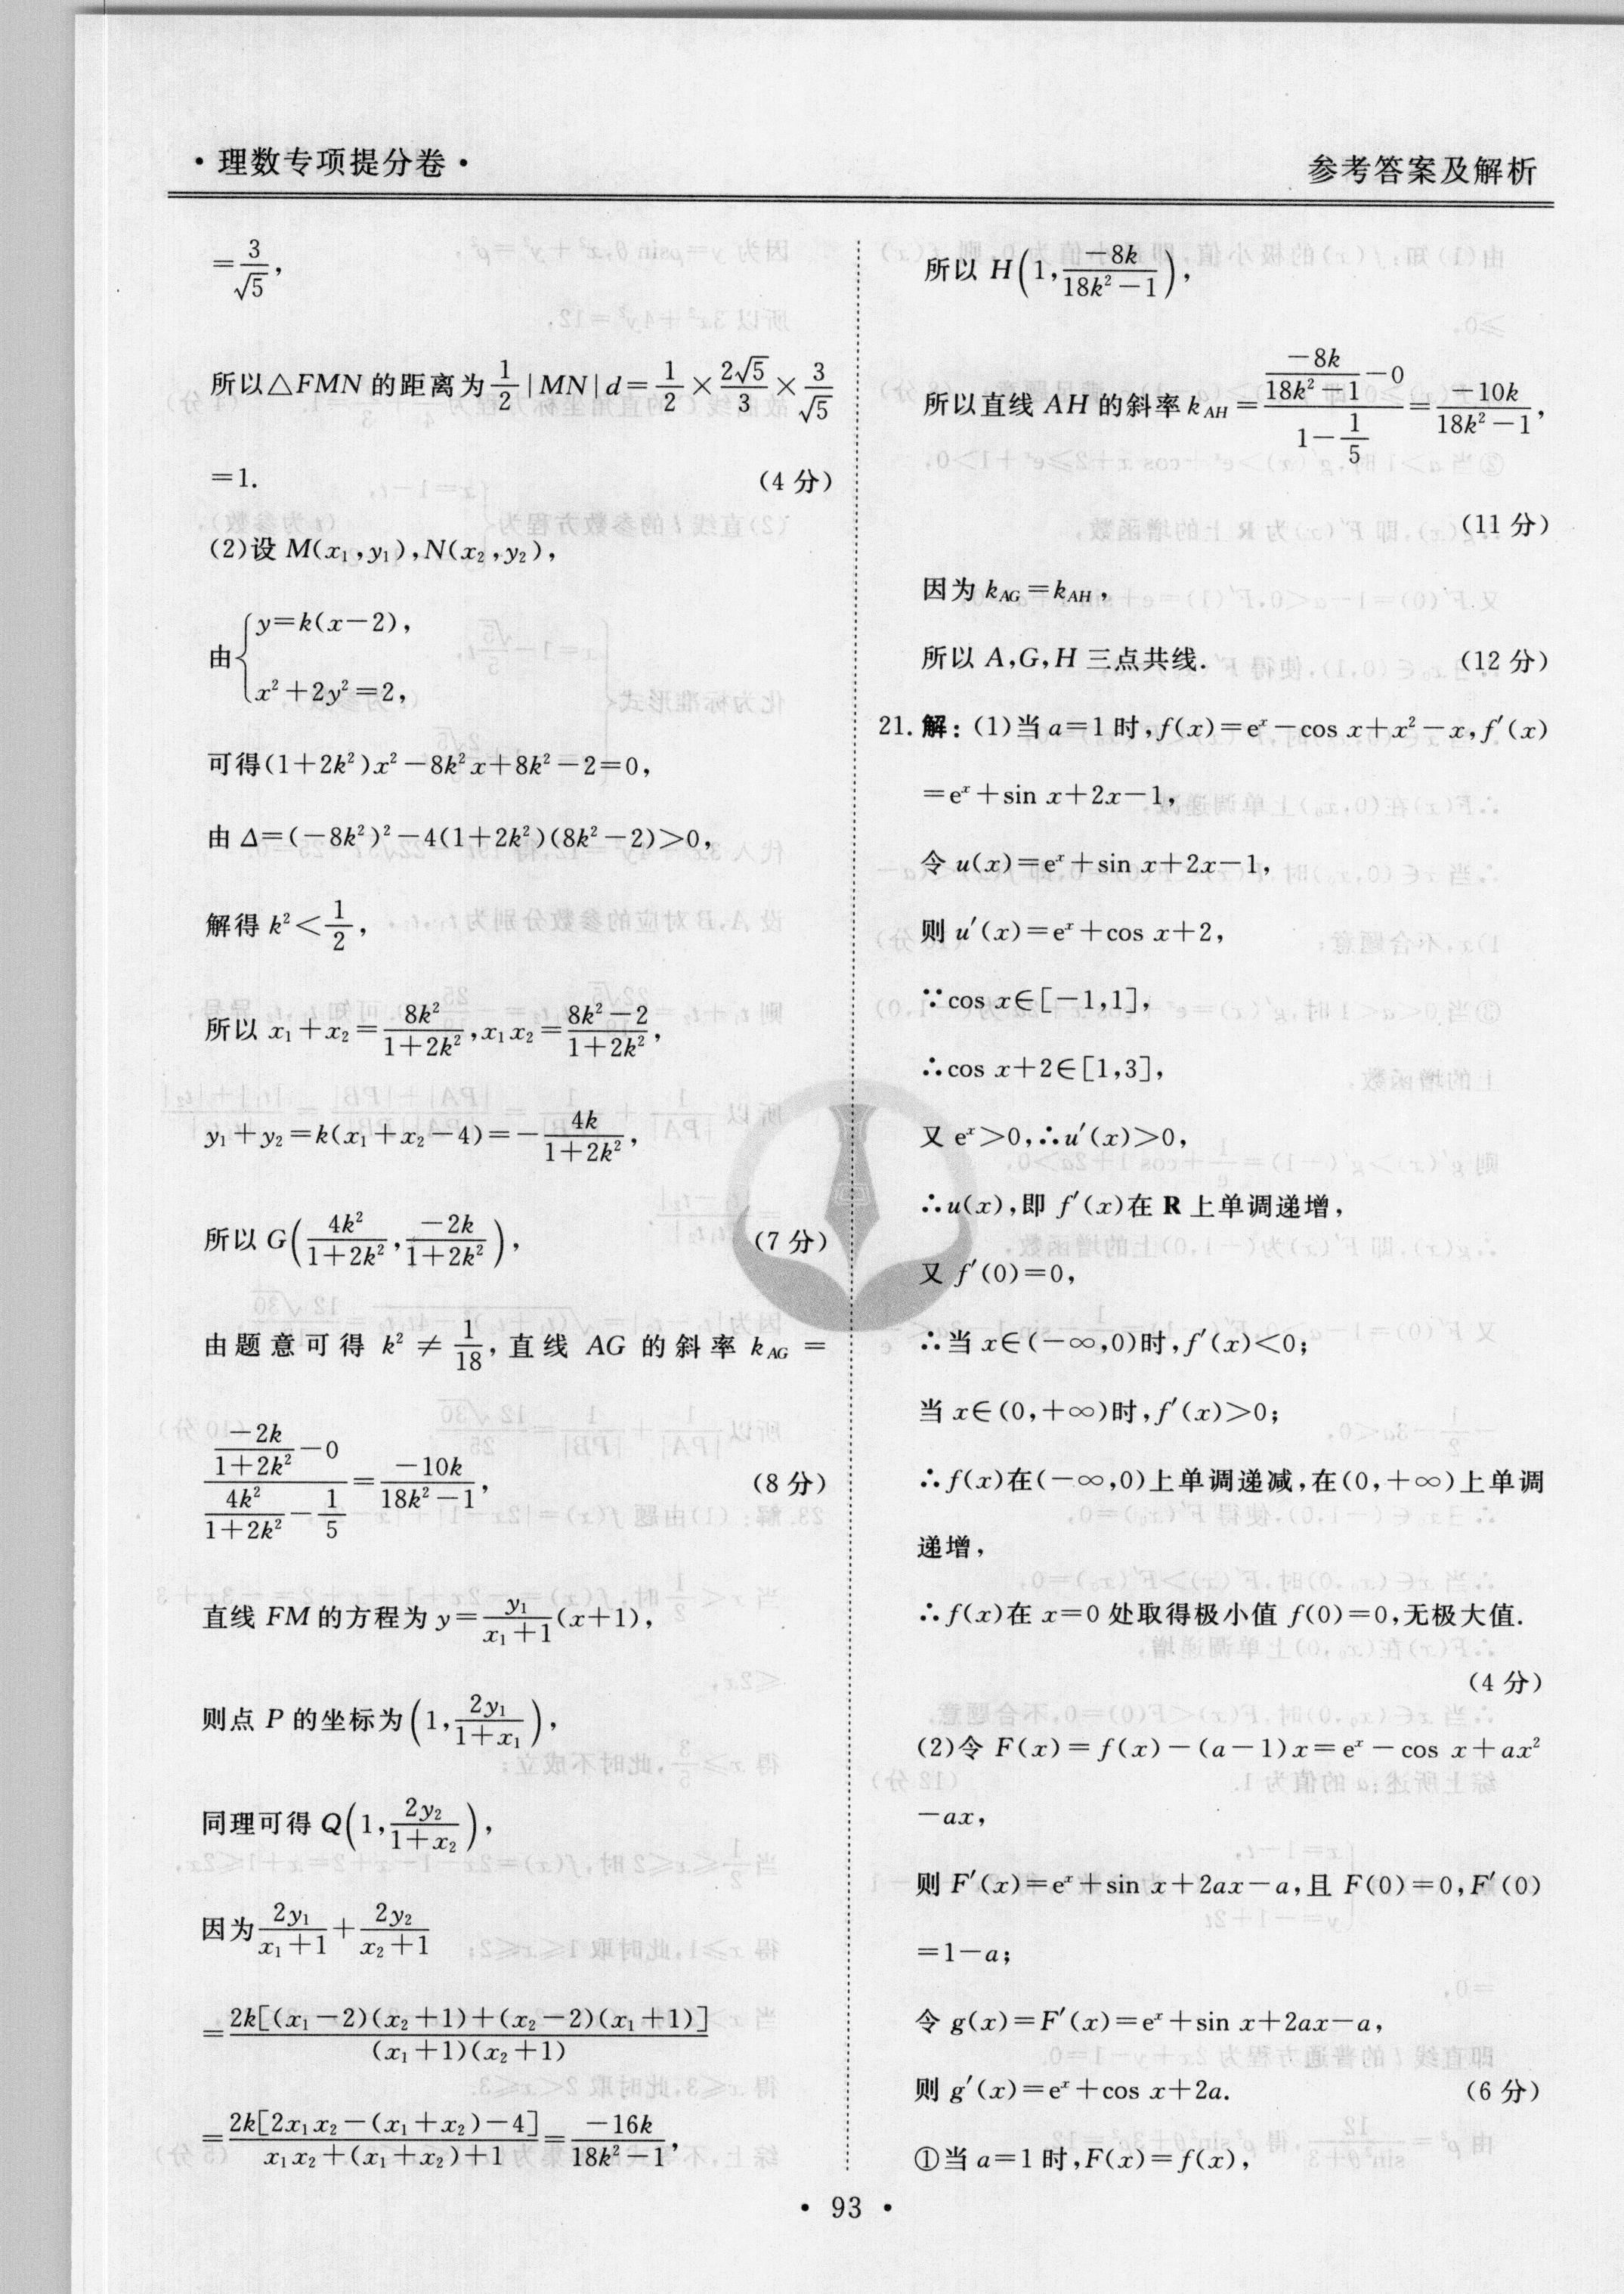 ·理数专项提分卷·
参考答案及解析
=3/√5,
所以△FMN 的距离为 1/2|MN|d=1/2×2√5/3×3/√5
=1. (4 分)
(2)设 M(x₁,y₁),N(x₂,y₂),
由{y=k(x-2),
x²+2y²=2,
可得(1+2k²)x²-8k²x+8k²-2=0,
由 Δ=(-8k²)²-4(1+2k²)(8k²-2)>0,
解得 k²<1/2,
所以 x₁+x₂=8k²/(1+2k²),x₁x₂=(8k²-2)/(1+2k²),
y₁+y₂=k(x₁+x₂-4)=-4k/(1+2k²),
所以 G(4k²/(1+2k²),-2k/(1+2k²)), (7 分)
由题意可得 k²≠1/18,直线 AG 的斜率 k_AG=
(-2k/(1+2k²)-0)/(4k²/(1+2k²)-1/5)=-10k/(18k²-1), (8 分)
直线 FM 的方程为 y=y₁/(x₁+1)(x+1),
则点 P 的坐标为(1,2y₁/(1+x₁)),
同理可得 Q(1,2y₂/(1+x₂)),
因为 2y₁/(x₁+1)+2y₂/(x₂+1)
=2k[(x₁-2)(x₂+1)+(x₂-2)(x₁+1)]/((x₁+1)(x₂+1))
=2k[2x₁x₂-(x₁+x₂)-4]/(x₁x₂+(x₁+x₂)+1)=-16k/(18k²-1),
所以 H(1,-8k/(18k²-1)),
所以直线 AH 的斜率 k_AH=(-8k/(18k²-1)-0)/(1-1/5)=-10k/(18k²-1),
(11 分)
因为 k_AG=k_AH,
所以 A,G,H 三点共线. (12 分)
21. 解:(1)当 a=1 时,f(x)=eˣ-cos x+x²-x,f′(x)
=eˣ+sin x+2x-1,
令 u(x)=eˣ+sin x+2x-1,
则 u′(x)=eˣ+cos x+2,
∵cos x∈[-1,1],
∴cos x+2∈[1,3],
又 eˣ>0,∴u′(x)>0,
∴u(x),即 f′(x)在 R 上单调递增,
又 f′(0)=0,
∴当 x∈(-∞,0)时,f′(x)<0;
当 x∈(0,+∞)时,f′(x)>0;
∴f(x)在(-∞,0)上单调递减,在(0,+∞)上单调
递增,
∴f(x)在 x=0 处取得极小值 f(0)=0,无极大值.
(4 分)
(2)令 F(x)=f(x)-(a-1)x=eˣ-cos x+ax²
-ax,
则 F′(x)=eˣ+sin x+2ax-a,且 F(0)=0,F′(0)
=1-a;
令 g(x)=F′(x)=eˣ+sin x+2ax-a,
则 g′(x)=eˣ+cos x+2a. (6 分)
①当 a=1 时,F(x)=f(x),
· 93 ·